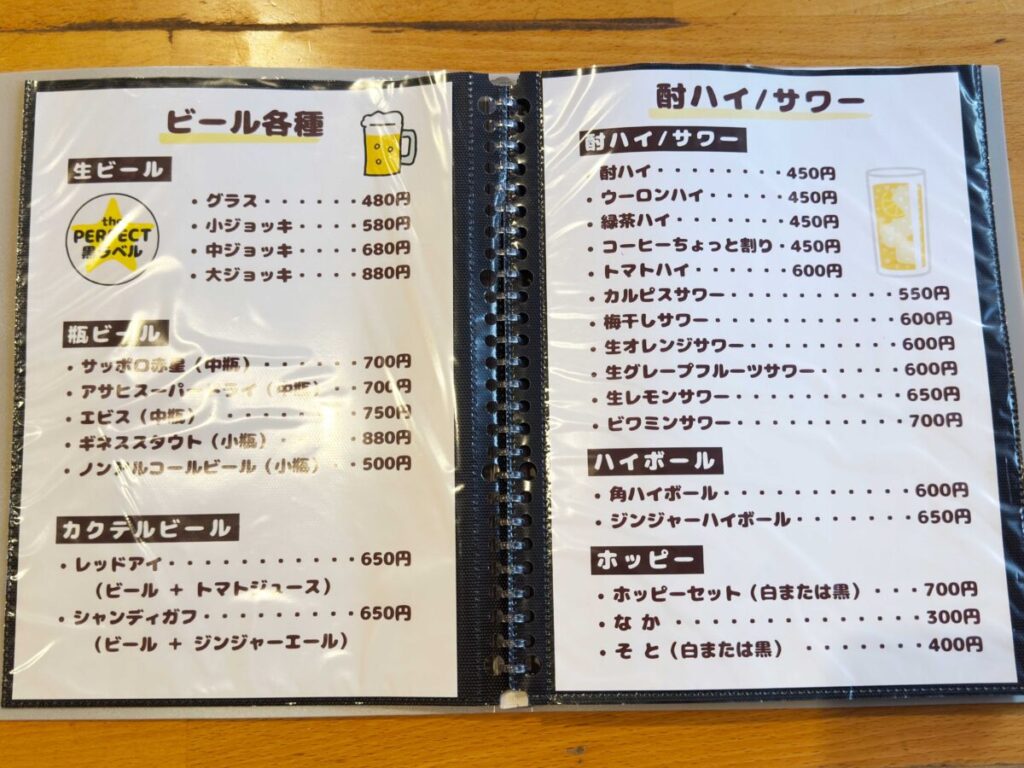 ビール各種
生ビール
the
PERFECT
黒ラベル
・グラス・・・・・480円
・小ジョッキ・・・・580円
・中ジョッキ・・・・680円
・大ジョッキ・・・・880円
瓶ビール
・サッポロ赤星（中瓶）・・・・・・・700円
・アサヒスーパードライ（中瓶）・・700円
・エビス（中瓶）・・・・・・・・・750円
・ギネススタウト（小瓶）・・・・・880円
・ノンアルコールビール（小瓶）・・500円
カクテルビール
・レッドアイ・・・・・・・・・・・650円
（ビール + トマトジュース）
・シャンディガフ・・・・・・・・・650円
（ビール + ジンジャーエール）
酎ハイ/サワー
酎ハイ/サワー
酎ハイ・・・・・・・・450円
・ウーロンハイ・・・・・450円
・緑茶ハイ・・・・・・・450円
・コーヒーちょっと割り・450円
・トマトハイ・・・・・・600円
・カルピスサワー・・・・・・・・・・550円
・梅干しサワー・・・・・・・・・・・600円
・生オレンジサワー・・・・・・・・・600円
・生グレープフルーツサワー・・・・・600円
・生レモンサワー・・・・・・・・・・650円
・ビワミンサワー・・・・・・・・・・700円
ハイボール
・角ハイボール・・・・・・・・・・・600円
・ジンジャーハイボール・・・・・・・650円
ホッピー
・ホッピーセット（白または黒）・・・700円
・なか・・・・・・・・・・・・・・・300円
・そと（白または黒）・・・・・・・400円